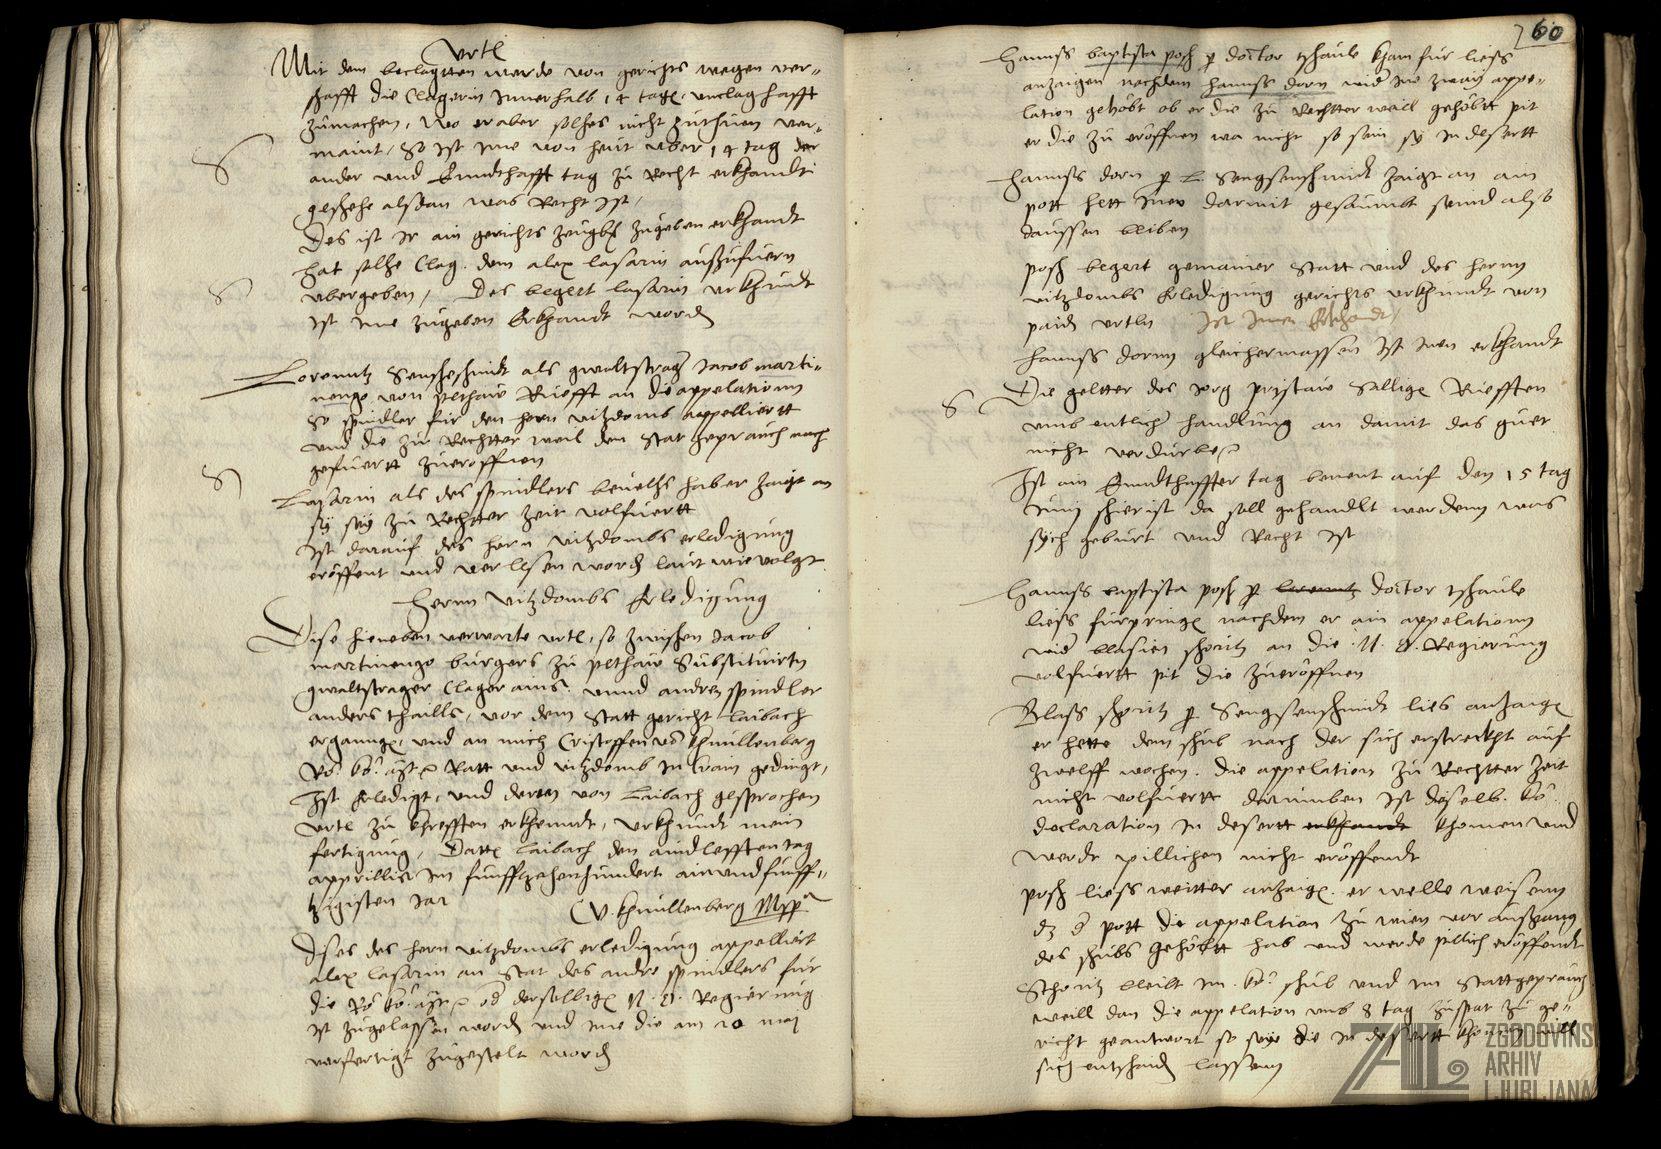 Vrtl
Mit dem beclagtten werde von gerichts wegen ver-
schafft die Clagerin Innerhalb 14 tagen vnclaghafft
zumachen, Wo er aber solches nicht zuthuen ver-
maint, So ist ime von heut vber 14 tag der
ander vnd Enndthafft tag zu Recht erkhandt
geschehe alsdan was Recht ist,
Des ist Ir ain gerichts zeugbrief zugeben erkhandt
hat solhe Clag dem alex lasarin auszufuern
vbergeben, Des begert lasarin vrkhundt
ist ime zugeben Erkhandt worden
Lorenntz Sensenschmidt als gwaltstrager Jacob marti-
nengo von Velthaw Ruefft an die appelationn
So spindler fur den hern vitzdomb appelliertt
vnd die zu Rechtter weil den Stat geprauch nach
gefuertt zueroffnen
Lasarin als des spindlers beuelhs haber zaigt an
sy sey zu Rechtter zeit volfuertt
ist darauf des hern vitzdombs erledigung
eröffent vnd verlesen worden laut wie volgt
Hernn vitzdombs Erledigung
Dise hieneben verwarte vrtl, so zwischen Jacob
martinengo burgers zu Velthaw Substituirtn
gwaltstrager Clager ains vnnd andren spindler
anders thaills, vor dem Statt gericht Laibach
ergangen, vnd an mich Cristoffen von khnullenberg
Rö. kö. Ratt vnd vitzdomb in Crain gedingt,
Ist Erledigt, vnd deren von Laibach gesprochen
vrtl zu khrefften erkhenndt, vrkhundt mein
fertigung, Datum Laibach den aindlefften tag
apprillis im funffzehenhundert ainvndfunff-
tzigisten Jar
C. V. khnullenberg Mpp
Dises des hern vitzdombs erledigung appelliert
alex lasarin an Stat des andre spindlers fur
die Rö. kö. od derselbigen N. Ö. Regierung
ist zugelassen worden vnd ime die am 20 maj
verfertigt zugestelt worden
60
Hanns baptista posch per doctor tschaule kham fur liess
anzaigen nachdem hanns dorn wider ine zway appe-
lation gehabt ob er die zu Rechtter weil gehabtt pit
er die zu eröffnen wa nicht so sein sy in desertt
Hanns dorn per L. Sengsenschmidt zaigt an ain
pott hett Inen darmit gesaumbt seind also
daussen bliben
posch begert gemainer Statt vnd des hernn
vitzdombs Erledigung gerichts vrkhundt von
paiden vrtln Ist Inen Erkhandt,
Hanns dorn gleichermassen ist Inen erkhandt
Die geltter des Jorg pristaw Säligen Riefften
vmb entliche handlung an damit das guet
nicht verdürbe
Ist ain Enndthaffter tag benent auf den 15 tag
Junj schierist da soll gehandlt werdenn was
sych geburt vnd Recht ist
Hanns baptista posch per lorenntz doctor tschaule
liess furpringen nachdem er ain appelationn
wider blasien schoritz an die N. Ö. Regierung
volfuertt pit die zueröffnen
Blass schoritz per Sengsenschmidt lies anzaigen
er hette dem schub nach der sich erstreckht auf
zwelff wochen. die appelation zu Rechtter zeit
nicht volfuertt darumben ist dieselb. kö.
declaration in desertt erkhandt khomen vnd
werde pillichen nicht eröffendt
posch liess weitter anzaigen er welle weisenn
dz der pott die appelation zu wien vor ausgang
des schubs gehabtt hab vnd werde pillich eröffendt
Schoritz bleibt im kö. schub vnd im Stattgeprauch
weill dan die appelation vmb 8 tag zuspat zu ge-
richt geantwort so seye die in desertt khomen will
sich entschaiden lassenn
ZGODOVINSKI
ARHIV
LJUBLJANA